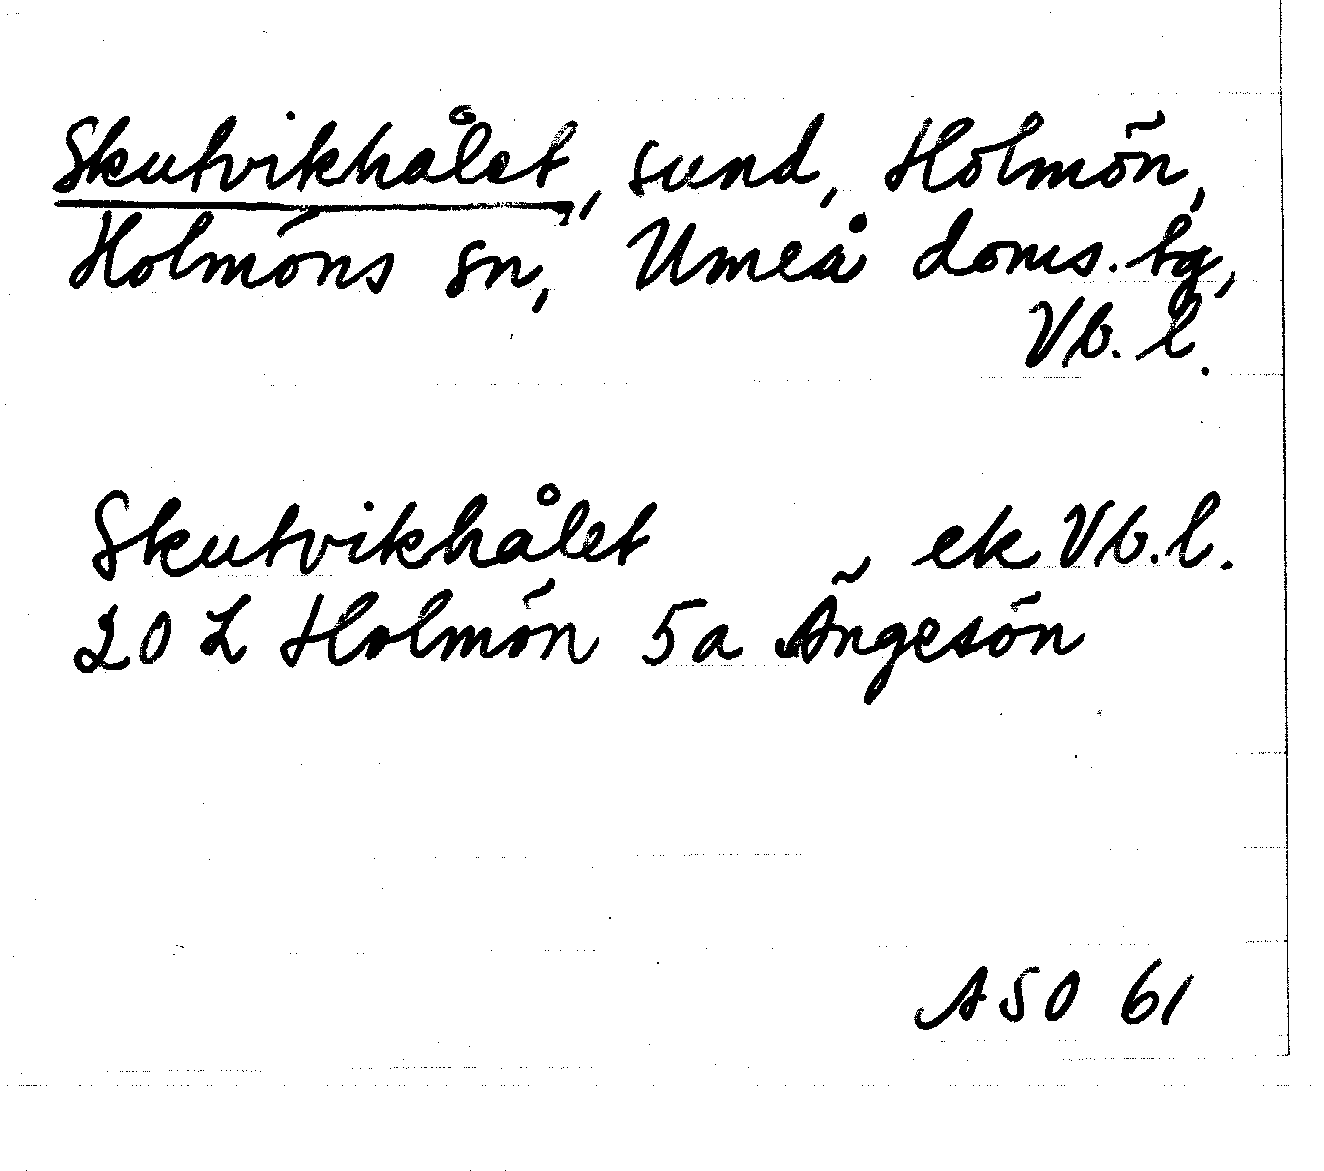 Skutvikhålet, sund, Holmön,
Holmöns sn, Umeå doms. tg,
Vb. l.
Skutvikhålet ek Vb. l.
20 L Holmön 5a Ängesön
ASO 61